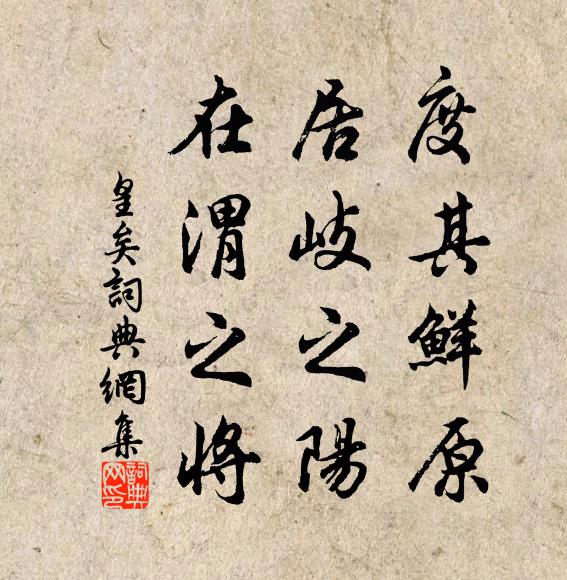 度其鮮原
居岐之陽
在渭之將
皇矣詞典網集
詞典网印